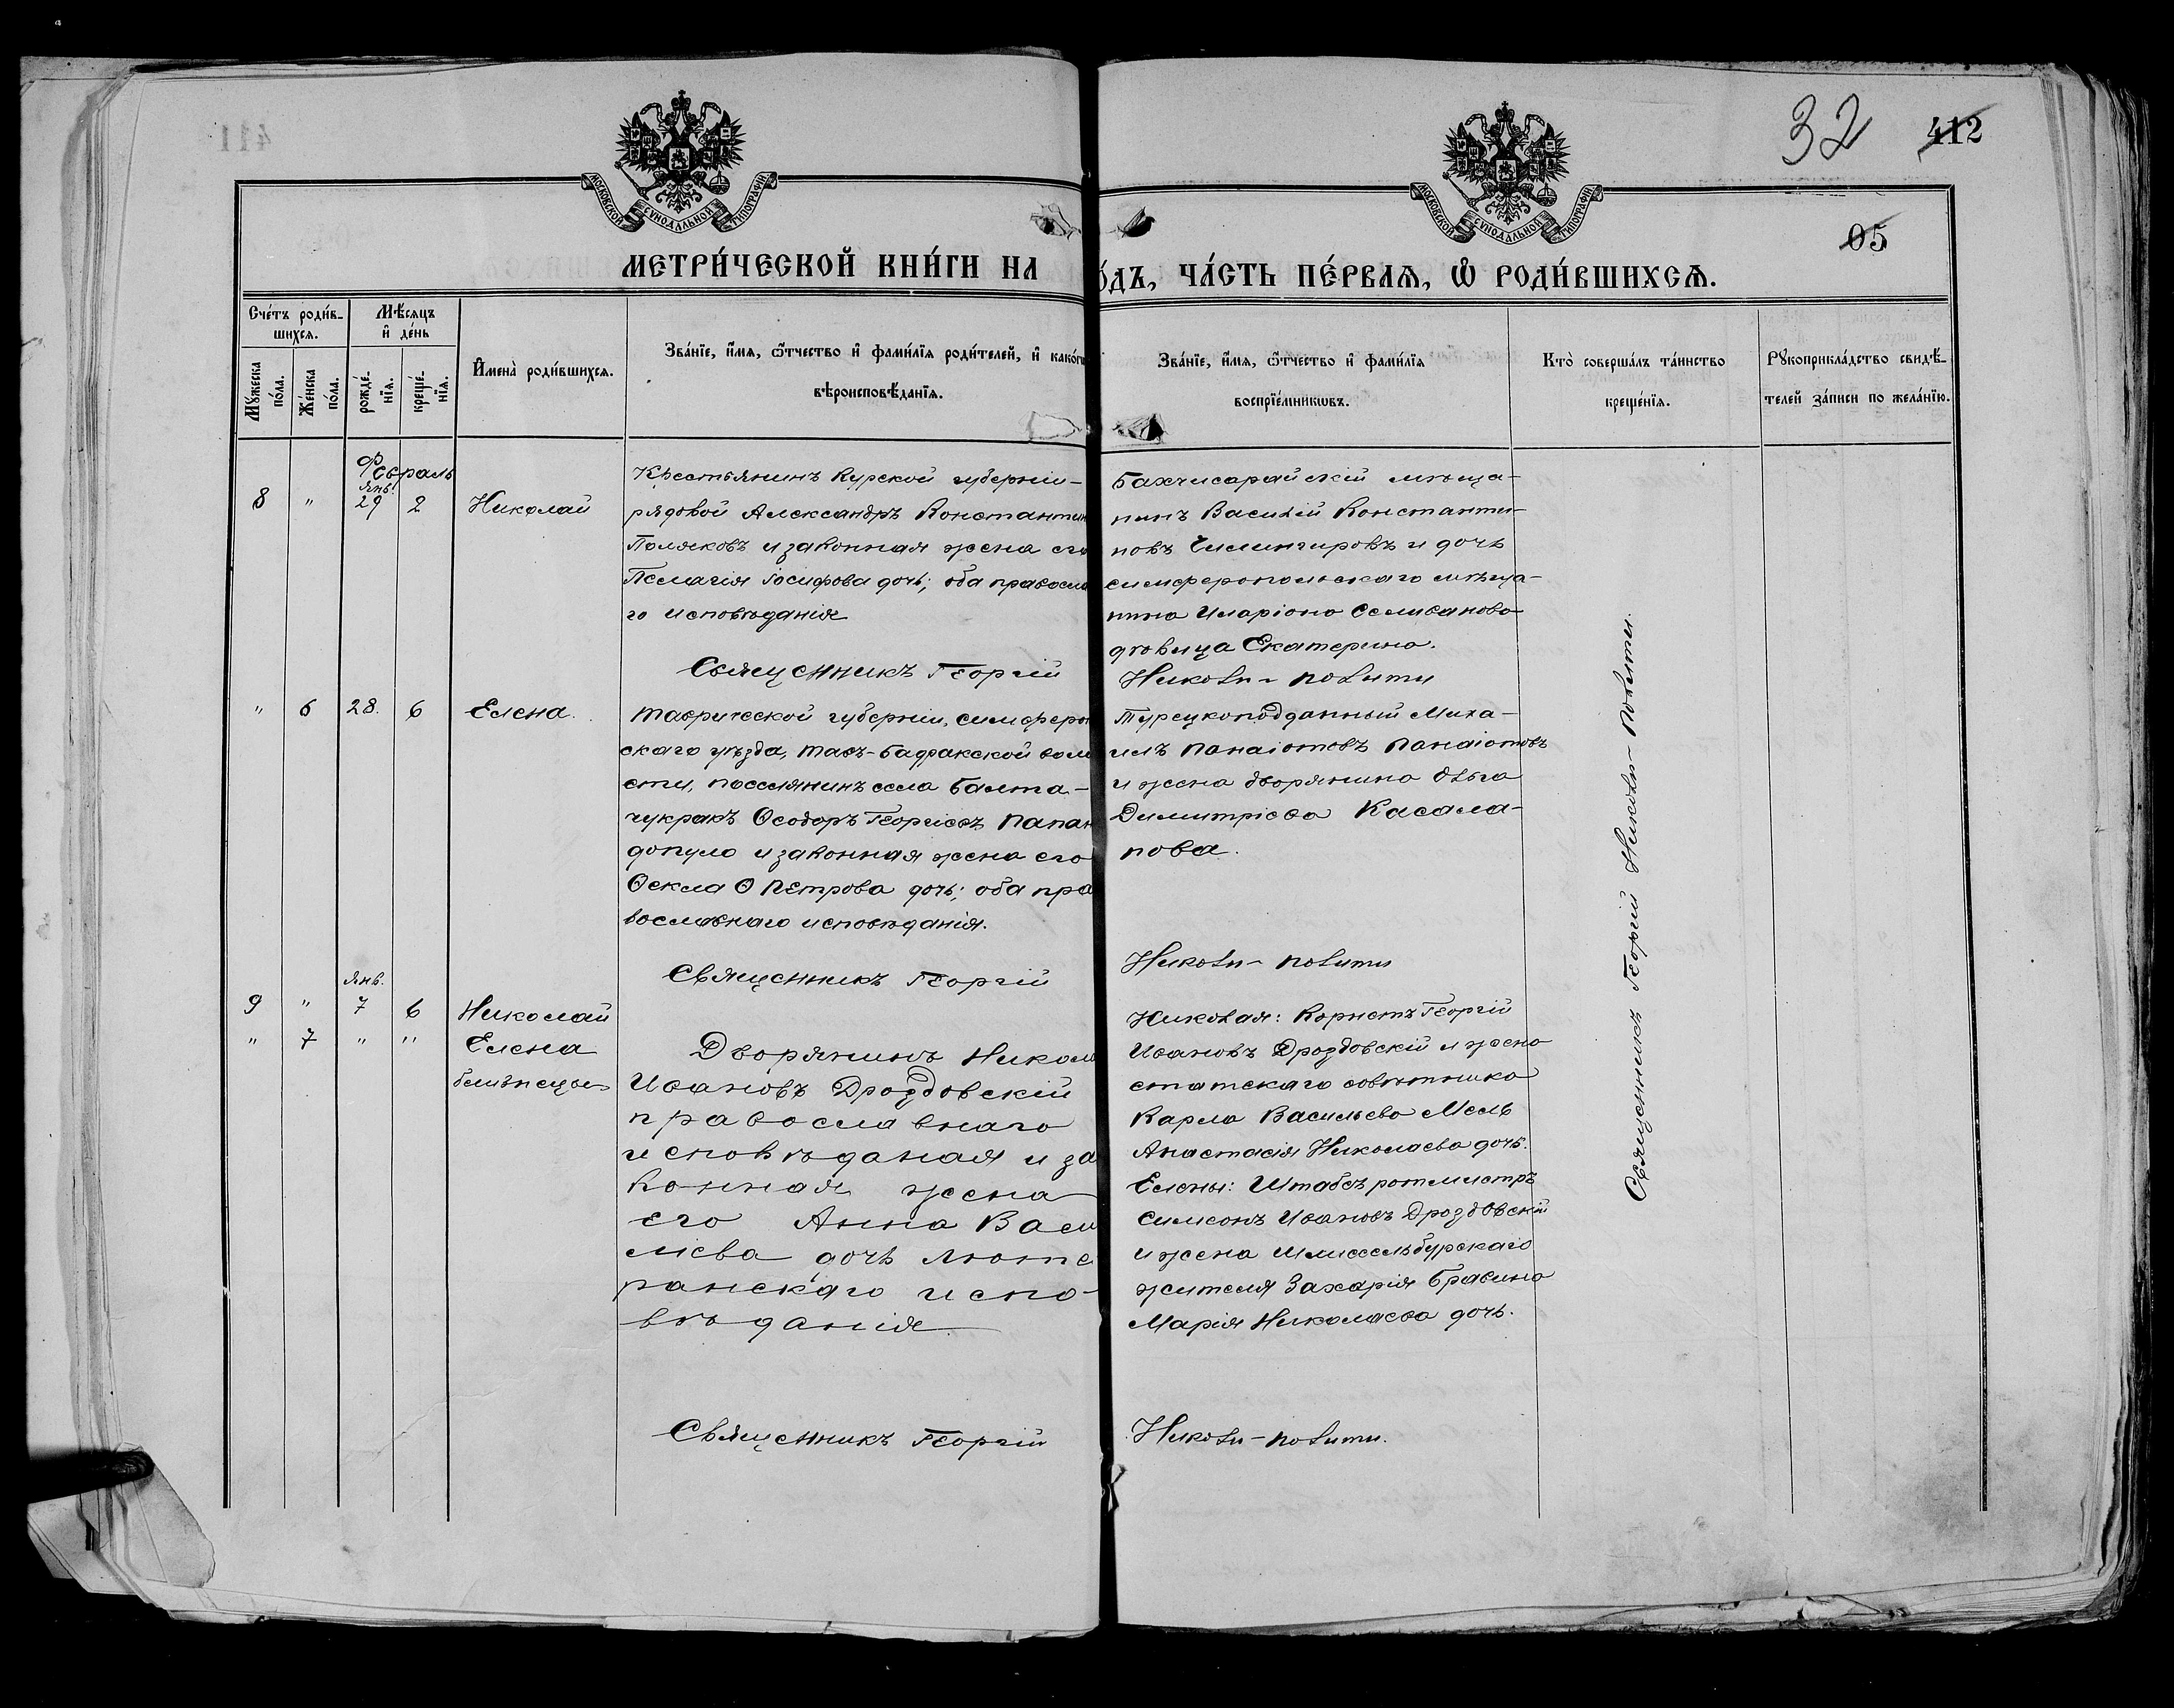 32 412
05
МОСКОВСКОЙ СУНОДАЛЬНОЙ ТИПОГРАФІИ
МОСКОВСКОЙ СУНОДАЛЬНОЙ ТИПОГРАФІИ
МЕТРИ́ЧЕСКОЙ КНИ́ГИ НА
О́ДЪ, ЧА́СТЬ ПЕ́РВАѦ, Ѡ҆ РОДИ́ВШИХСѦ.
Сче́тъ роди́в-
шихсѧ.
Мѣ́сѧцъ
и҆ де́нь
Мꙋ́жеска
по́ла.
Же́нска
по́ла.
рожде́-
нїѧ.
креще́-
нїѧ.
И҆мена̀ роди́вшихсѧ.
Зва́нїе, и҆́мѧ, ѻ҆́тчество и҆ фами́лїѧ роди́телей, и҆ како́гѡ
вѣроисповѣ́данїѧ.
Зва́нїе, и҆́мѧ, ѻ҆́тчество и҆ фами́лїѧ
воспрїе́мникѡвъ.
Кто̀ соверша́лъ та́инство
креще́нїѧ.
Рꙋкоприкла́дство свидѣ́-
телей за́писи по жела́нїю.
Февраль
Янв.
8 " 29 2 Николай
Крестьянинъ Курской губерніи-
рядовой Александръ Константин
Поляковъ и законная жена его
Пелагія Іосифова дочь; оба правосла
го исповѣданія
Священникъ Георгій
Бахчисарайскій мѣща-
нинъ Василій Константи-
новъ Чилингировъ и дочь
симферопольскаго мѣща-
нина Иларіона Селиванова
дѣвица Екатерина.
Николи-Полити
" 6 28. 6 Елена.
Таврической губерніи, симфероп
скаго уѣзда, Тавъ-Бадракской вол
сти, поселянинъ села Балта-
чукракъ Ѳеодоръ Георгіевъ Папан
допуло и законная жена его
Ѳекла Петрова дочь; оба пра
вославнаго исповѣданія.
Священникъ Георгій
Турецкоподданный Миха-
илъ Панаіотовъ Панаіотовъ
и жена дворянина Ольга
Димитріева Касала-
пова.
Николи-Полити
Янв.
9 " 7 6 Николай
" 7 " " Елена
близнецы
Дворянинъ Никол
Ивановъ Дроздовскій
православнаго
исповѣданая и за
конная жена
его Анна Васи
лієва дочь люте
ранскаго испо-
вѣданія.
Священникъ Георгій
Николая: Корнетъ Георгій
Ивановъ Дроздовскій и жена
статскаго совѣтника
Карла Васильева Мель
Анастасія Николаева дочь.
Елены: Штабсъ ротмистръ
Симеонъ Ивановъ Дроздовскій
и жена шлиссельбурскаго
жителя Захарія Бравина
Марія Николаева дочь.
Николи-Полити.
Священникъ Георгій Николи-Полити.